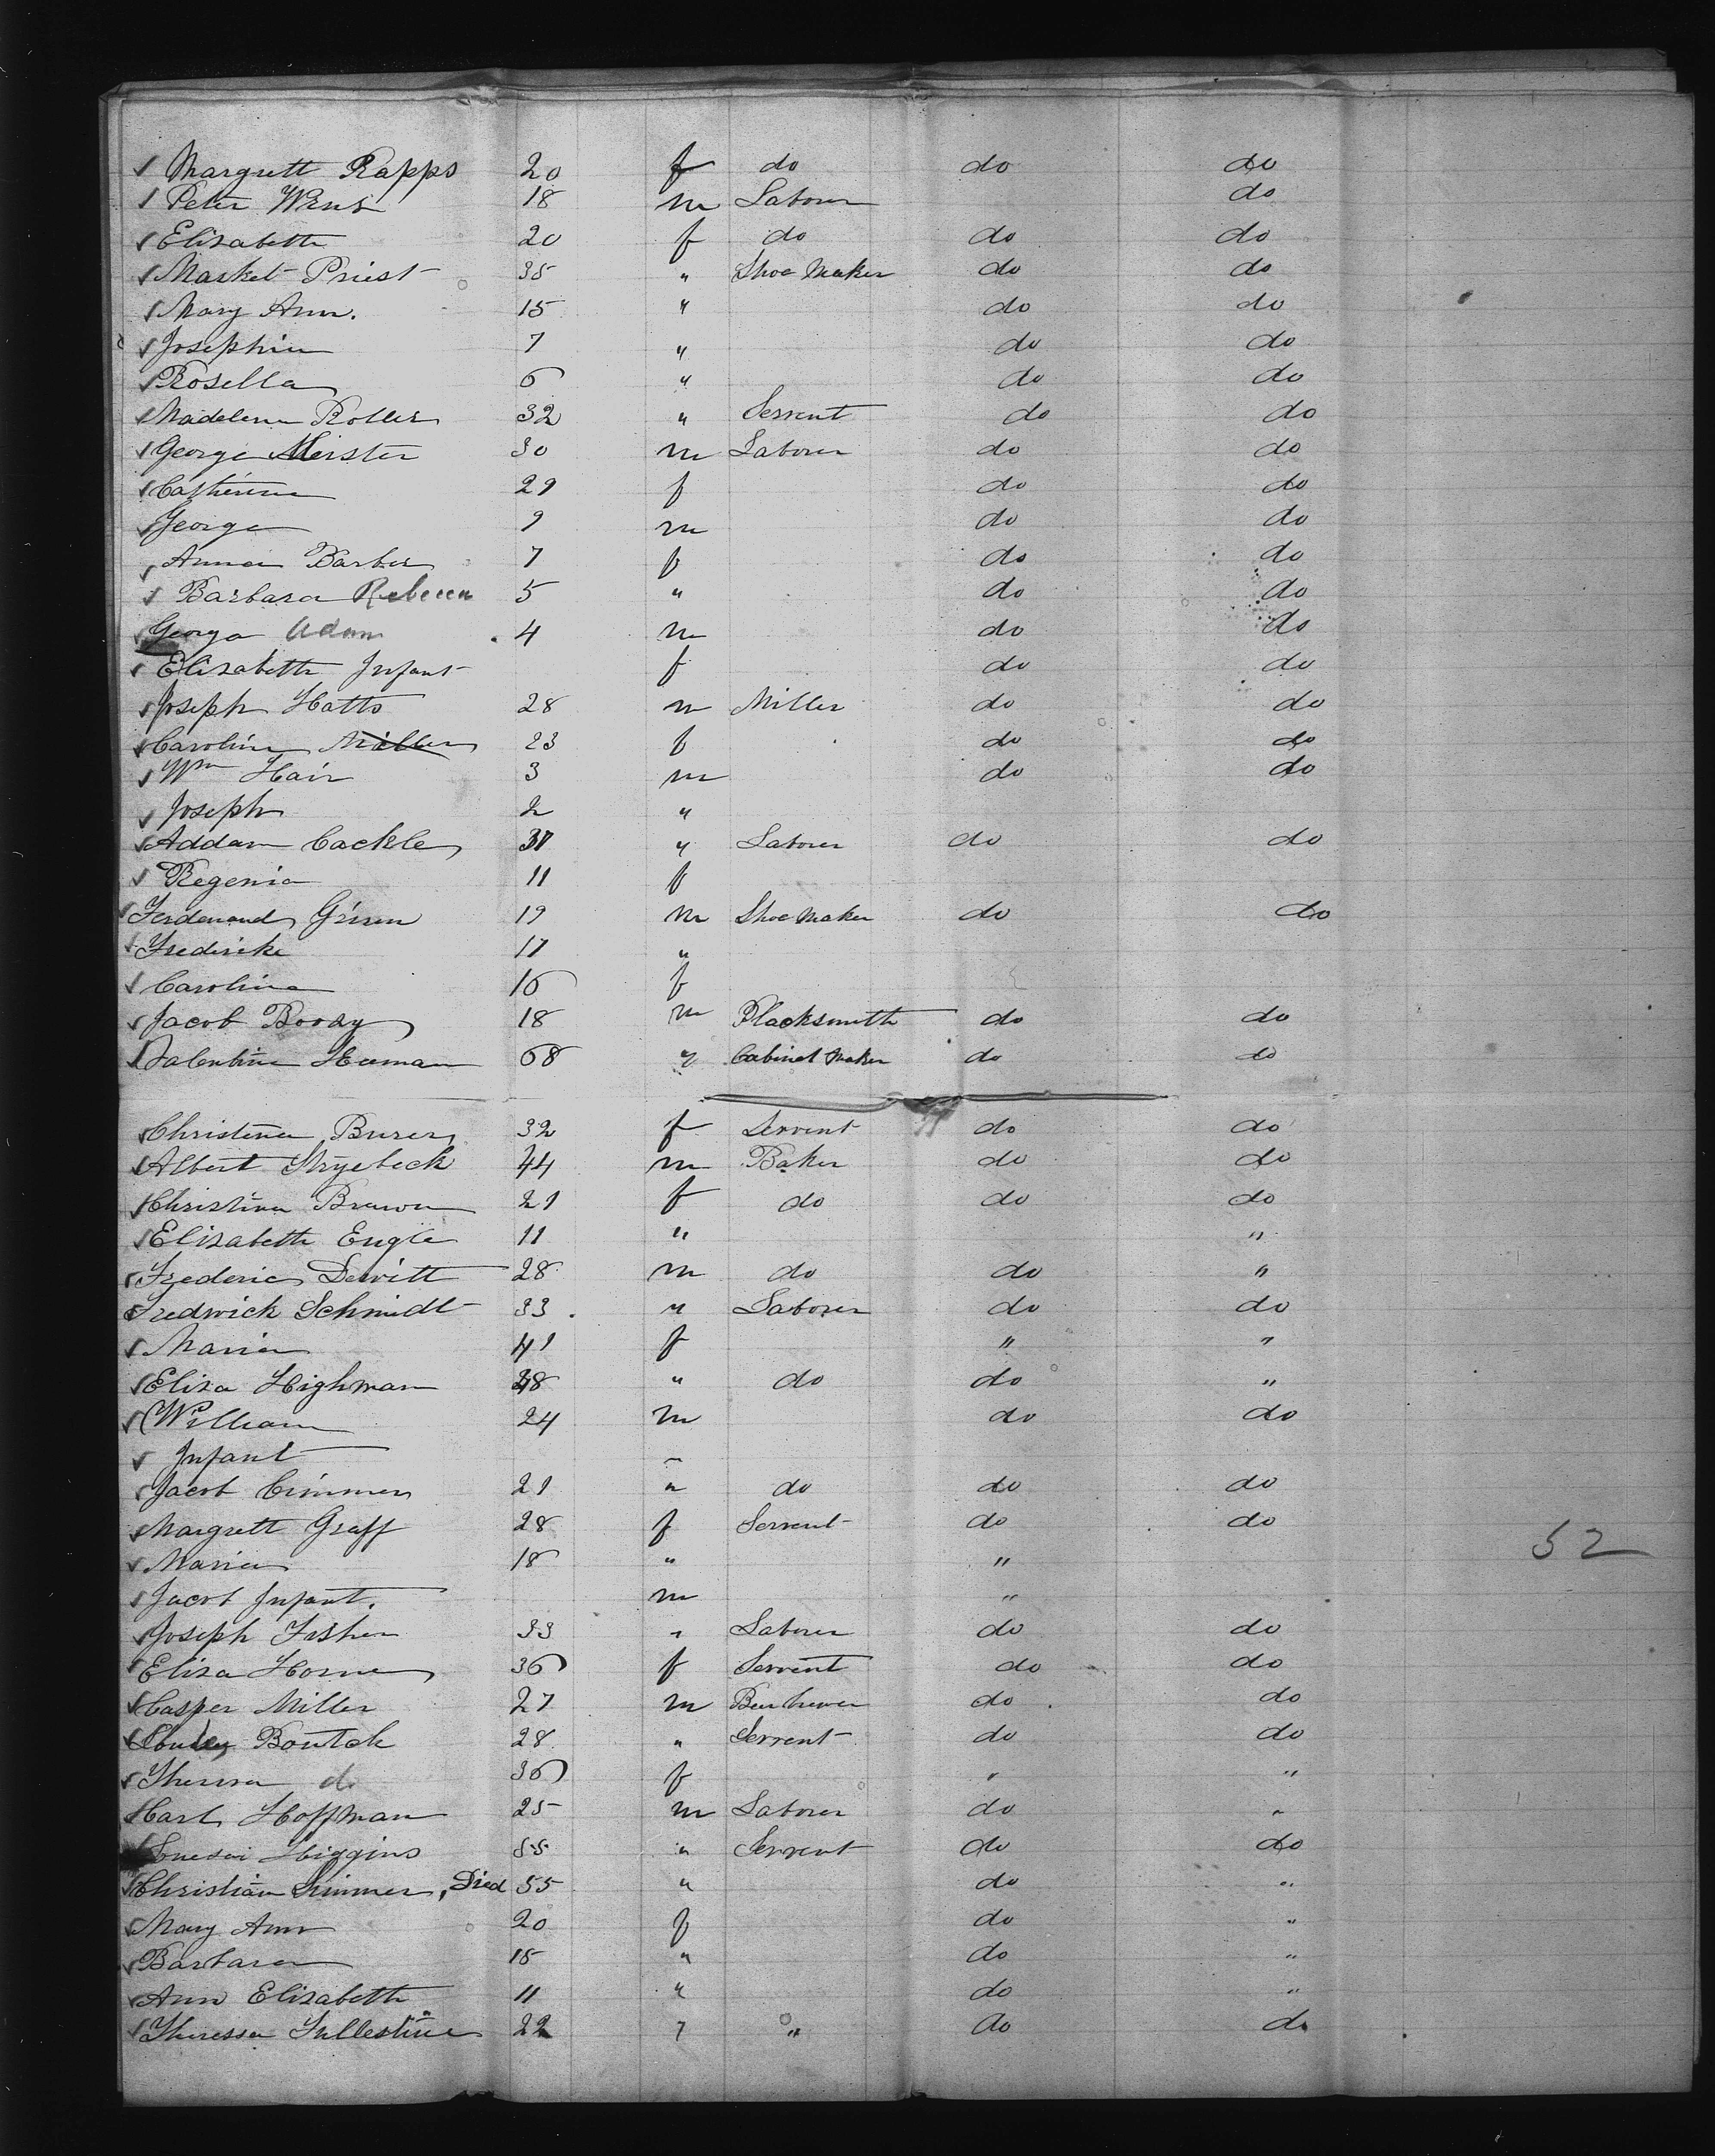 ✓ Margrett Rapps 20 f do do do
✓ Peter Wens 18 m Laborer do
✓ Elisabeth 20 f do do do
✓ Market Priest 35 " Shoe Maker do do
✓ Mary Ann. 15 " do do
✓ Josephine 7 " do do
✓ Rosella 6 " do do
✓ Madelena Roller 32 " Servent do do
✓ George Meister 30 m Laborer do do
✓ Catherine 29 f do do
✓ George 9 m do do
✓ Anna Barber 7 f do do
✓ Barbara Rebecca 5 " do do
George Adam 4 m do do
✓ Elisabeth Infant f do do
✓ Joseph Hatto 28 m Miller do do
✓ Caroline Miller 23 f do do
✓ Wm Hair 3 m do do
✓ Joseph 2 "
✓ Addam Cackle 31 " Laborer do do
✓ Regenia 11 f
✓ Ferdenand Grisen 19 m Shoe Maker do do
✓ Fredericke 17 "
✓ Carolina 16 f
✓ Jacob Booay 18 m Blacksmith do do
✓ Valentine Heeman 68 " Cabinet Maker do do
✓ Christina Burer 32 f Servent do do
✓ Albert Stryebeck 44 m Baker do do
✓ Christina Brawn 21 f do do do
✓ Elisabeth Engle 11 " "
✓ Frederic Dewitt 28 m do do "
✓ Fredwick Schmidt 33 " Laborer do do
✓ Maria 41 f " "
✓ Elisa Highman 28 " do do "
✓ William 24 m do do
✓ Infant "
✓ Jacob Cimmer 21 " do do do
✓ Margrett Graff 28 f Servent do do
✓ Maria 18 " " 52
✓ Jacob Infant. m "
✓ Joseph Fisher 33 " Laborer do do
✓ Elisa Horne 36 f Servent do do
✓ Casper Miller 27 m do do
✓ Boutck 28 " Servent do do
✓ Theresa do 36 f " "
✓ Carl Hoffman 25 m Laborer do "
Higgins 55 " Servent do do
✓ Christian Simmer, Died 55 " do "
✓ Mary Ann 20 f do "
✓ Barbara 18 " do "
✓ Ann Elisabeth 11 " do "
✓ Theressa Sullestine 22 " " do do